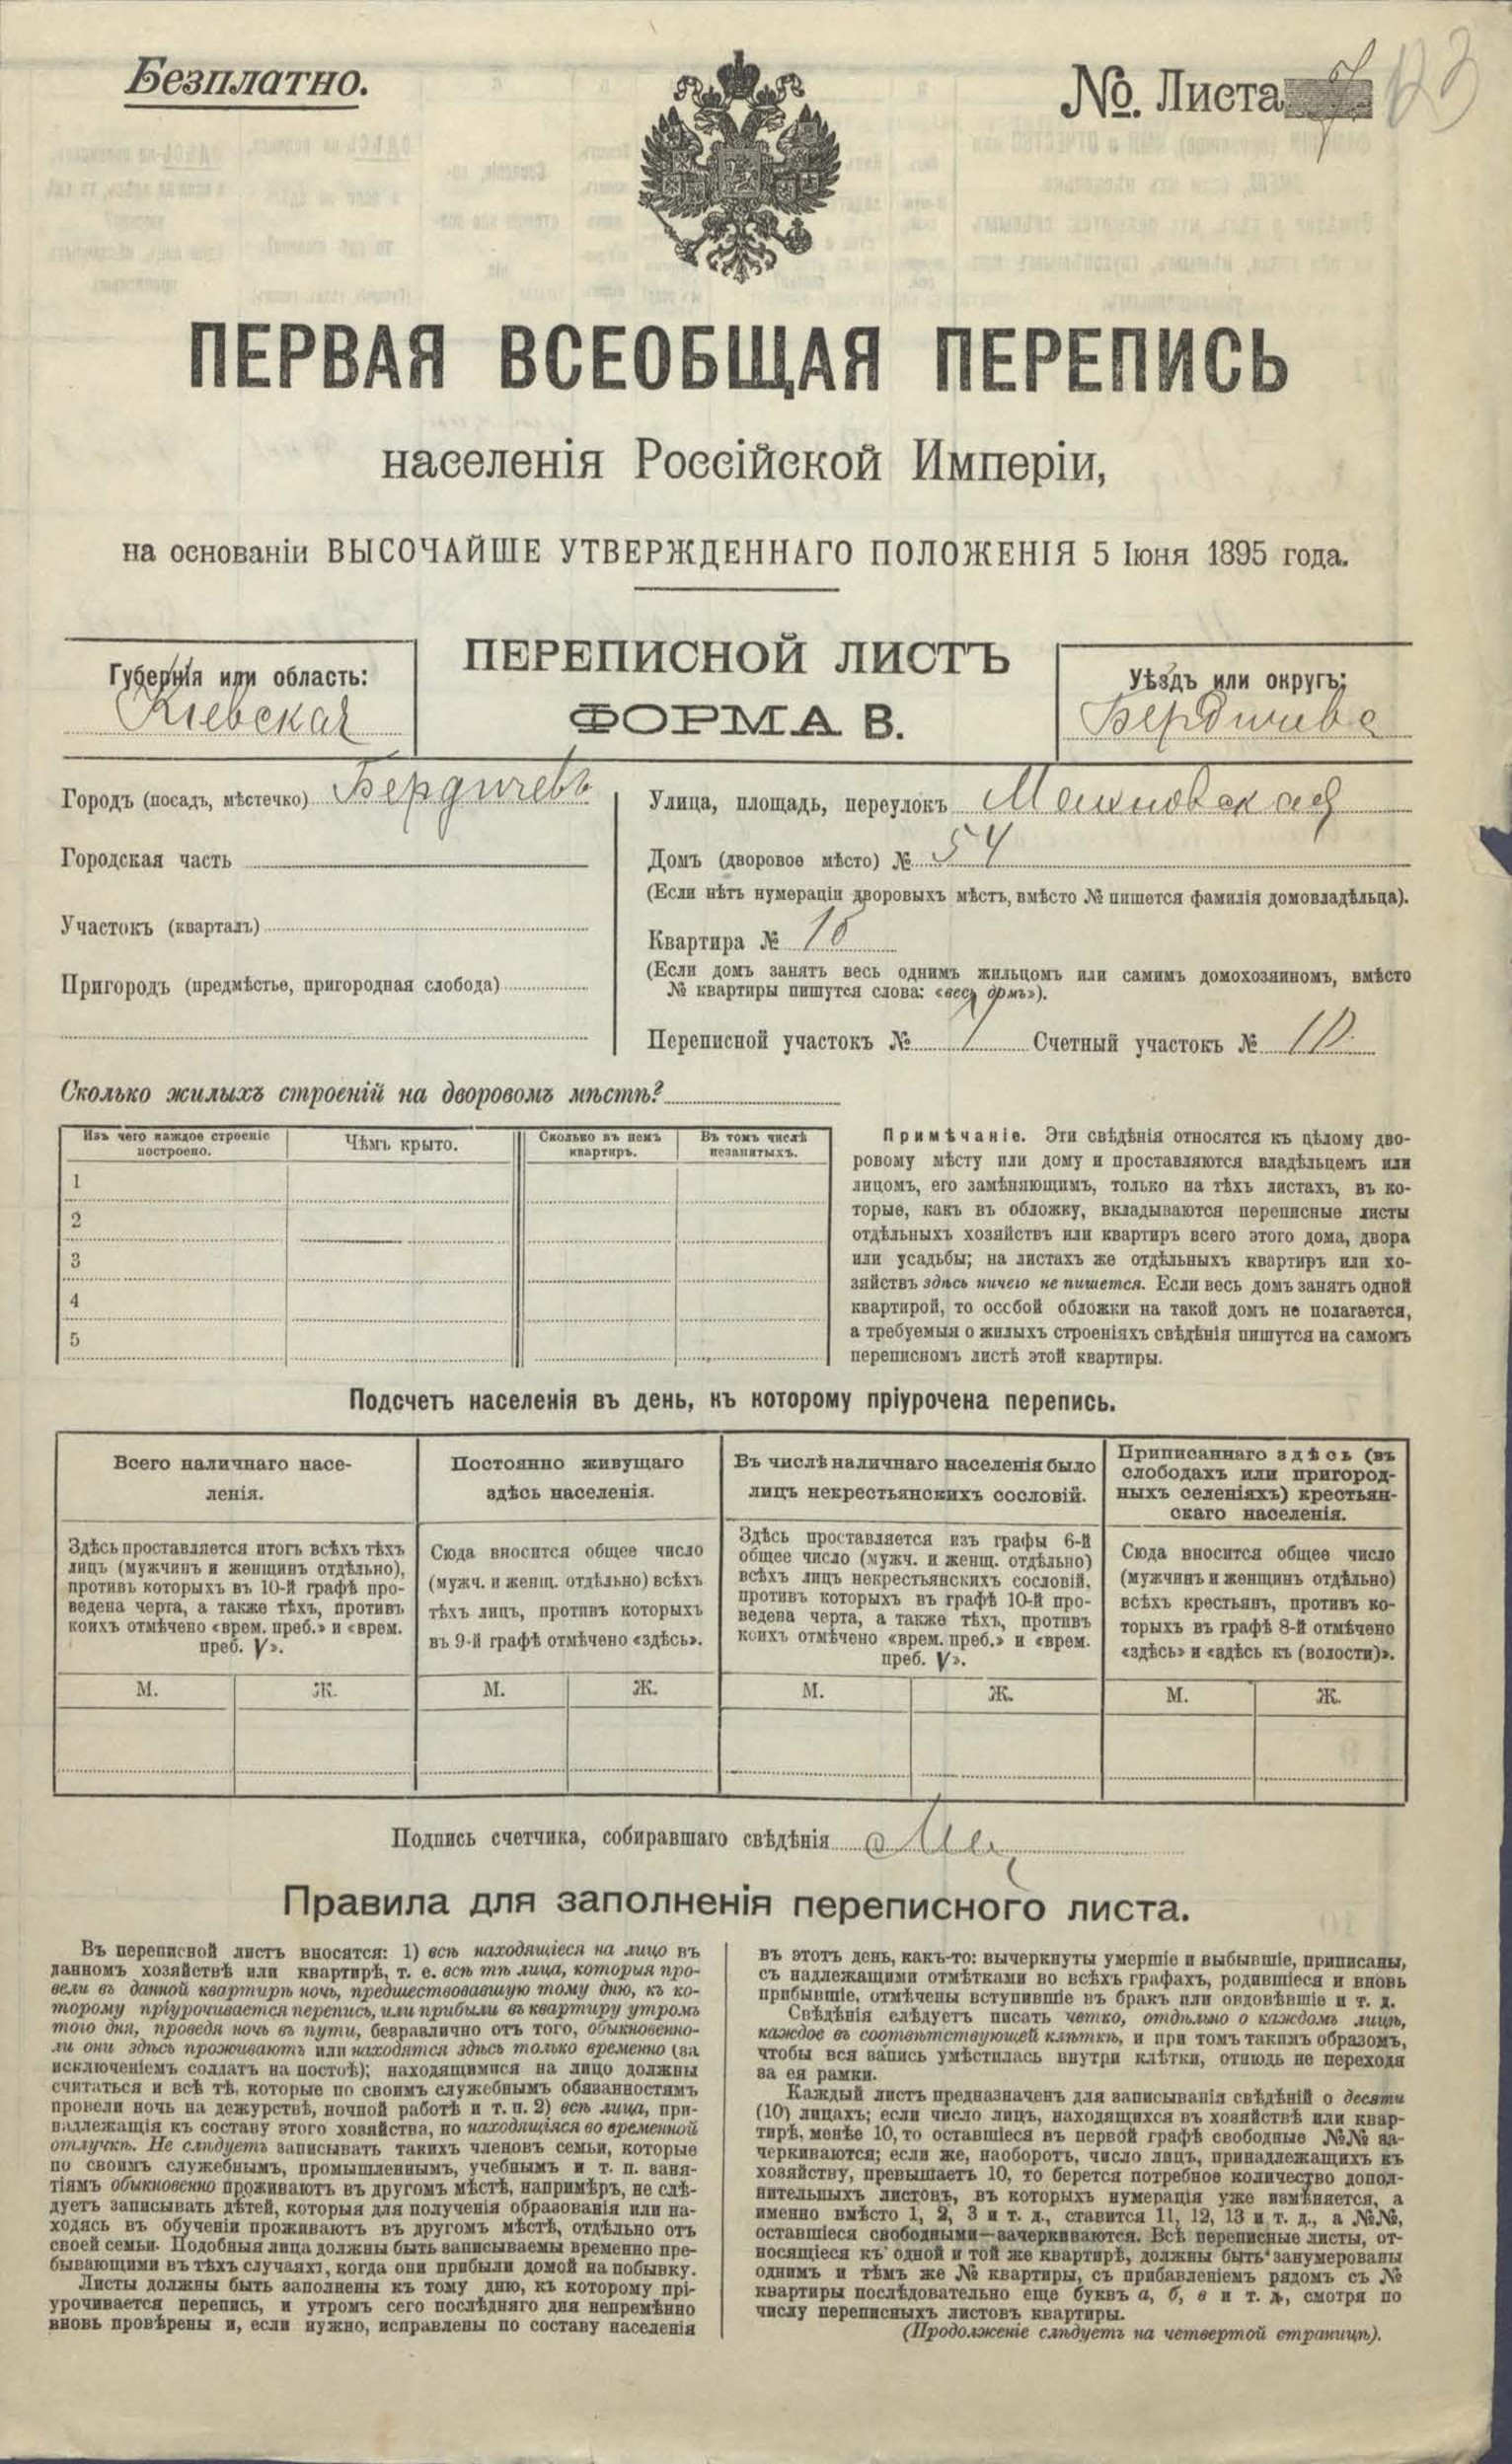 Безплатно.
№. Листа
ПЕРВАЯ ВСЕОБЩАЯ ПЕРЕПИСЬ
населенія Россійской Имперіи,
на основаніи ВЫСОЧАЙШЕ УТВЕРЖДЕННАГО ПОЛОЖЕНІЯ 5 Іюня 1895 года.
ПЕРЕПИСНОЙ ЛИСТЪ
ФОРМА В.
Губернія или область:
Кіевская
Уѣздъ или округъ:
Бердичевс
Городъ (посадъ, мѣстечко) Бердичевъ
Городская часть
Участокъ (кварталъ)
Пригородъ (предмѣстье, пригородная слобода)
Улица, площадь, переулокъ Махновская
Домъ (дворовое мѣсто) № 54
(Если нѣтъ нумераціи дворовыхъ мѣстъ, вмѣсто № пишется фамилія домовладѣльца).
Квартира №
(Если домъ занятъ весь однимъ жильцомъ или самимъ домохозяиномъ, вмѣсто
№ квартиры пишутся слова: «весь домъ»).
Переписной участокъ № 1 Счетный участокъ № 10
Сколько жилыхъ строеній на дворовомъ мѣстѣ?
Изъ чего каждое строеніе
построено.
Чѣмъ крыто.
Сколько въ немъ
квартиръ.
Въ томъ числѣ
незанятыхъ.
1
2
3
4
5
Примѣчаніе. Эти свѣдѣнія относятся къ цѣлому дво-
ровому мѣсту или дому и проставляются владѣльцемъ или
лицомъ, его замѣняющимъ, только на тѣхъ листахъ, въ ко-
торые, какъ въ обложку, вкладываются переписные листы
отдѣльныхъ хозяйствъ или квартиръ всего этого дома, двора
или усадьбы; на листахъ же отдѣльныхъ квартиръ или хо-
зяйствъ здѣсь ничего не пишется. Если весь домъ занятъ одной
квартирой, то особой обложки на такой домъ не полагается,
а требуемыя о жилыхъ строеніяхъ свѣдѣнія пишутся на самомъ
переписномъ листѣ этой квартиры.
Подсчетъ населенія въ день, къ которому пріурочена перепись.
Всего наличнаго насе-
ленія.
Постоянно живущаго
здѣсь населенія.
Въ числѣ наличнаго населенія было
лицъ некрестьянскихъ сословій.
Приписаннаго здѣсь (въ
слободахъ или пригород-
ныхъ селеніяхъ) крестьян-
скаго населенія.
Здѣсь проставляется итогъ всѣхъ тѣхъ
лицъ (мужчинъ и женщинъ отдѣльно),
противъ которыхъ въ 10-й графѣ про-
ведена черта, а также тѣхъ, противъ
коихъ отмѣчено «врем. преб.» и «врем.
преб. V».
Сюда вносится общее число
(мужч. и женщ. отдѣльно) всѣхъ
тѣхъ лицъ, противъ которыхъ
въ 9-й графѣ отмѣчено «здѣсь».
Здѣсь проставляется изъ графы 6-й
общее число (мужч. и женщ. отдѣльно)
всѣхъ лицъ некрестьянскихъ сословій,
противъ которыхъ въ графѣ 10-й про-
ведена черта, а также тѣхъ, противъ
коихъ отмѣчено «врем. преб.» и «врем.
преб. V».
Сюда вносится общее число
(мужчинъ и женщинъ отдѣльно)
всѣхъ крестьянъ, противъ ко-
торыхъ въ графѣ 8-й отмѣчено
«здѣсь» и «здѣсь къ (волости)».
М. Ж. М. Ж. М. Ж. М. Ж.
Подпись счетчика, собиравшаго свѣдѣнія
Правила для заполненія переписного листа.
Въ переписной листъ вносятся: 1) всѣ находящіеся на лицо въ
данномъ хозяйствѣ или квартирѣ, т. е. всѣ тѣ лица, которыя про-
вели въ данной квартирѣ ночь, предшествовавшую тому дню, къ ко-
торому пріурочивается перепись, или прибыли въ квартиру утромъ
того дня, проведя ночь въ пути, безразлично отъ того, обыкновенно-
ли они здѣсь проживаютъ или находятся здѣсь только временно (за
исключеніемъ солдатъ на постоѣ); находящимися на лицо должны
считаться и всѣ тѣ, которые по своимъ служебнымъ обязанностямъ
провели ночь на дежурствѣ, ночной работѣ и т. п. 2) всѣ лица, при-
надлежащія къ составу этого хозяйства, но находящіяся во временной
отлучкѣ. Не слѣдуетъ записывать такихъ членовъ семьи, которые
по своимъ служебнымъ, промышленнымъ, учебнымъ и т. п. заня-
тіямъ обыкновенно проживаютъ въ другомъ мѣстѣ, напримѣръ, не слѣ-
дуетъ записывать дѣтей, которыя для полученія образованія или на-
ходясь въ обученіи проживаютъ въ другомъ мѣстѣ, отдѣльно отъ
своей семьи. Подобныя лица должны быть записываемы временно пре-
бывающими въ тѣхъ случаяхъ, когда они прибыли домой на побывку.
Листы должны быть заполнены къ тому дню, къ которому прі-
урочивается перепись, и утромъ сего послѣдняго дня непремѣнно
вновь провѣрены и, если нужно, исправлены по составу населенія
въ этотъ день, какъ-то: вычеркнуты умершіе и выбывшіе, приписаны,
съ надлежащими отмѣтками во всѣхъ графахъ, родившіеся и вновь
прибывшіе, отмѣчены вступившіе въ бракъ или овдовѣвшіе и т. д.
Свѣдѣнія слѣдуетъ писать четко, отдѣльно о каждомъ лицѣ,
каждое въ соотвѣтствующей клѣткѣ, и при томъ такимъ образомъ,
чтобы вся запись умѣстилась внутри клѣтки, отнюдь не переходя
за ея рамки.
Каждый листъ предназначенъ для записыванія свѣдѣній о десяти
(10) лицахъ; если число лицъ, находящихся въ хозяйствѣ или квар-
тирѣ, менѣе 10, то оставшіеся въ первой графѣ свободные №№ за-
черкиваются; если же, наоборотъ, число лицъ, принадлежащихъ къ
хозяйству, превышаетъ 10, то берется потребное количество допол-
нительныхъ листовъ, въ которыхъ нумерація уже измѣняется, а
именно вмѣсто 1, 2, 3 и т. д., ставится 11, 12, 13 и т. д., а №№,
оставшіеся свободными—зачеркиваются. Всѣ переписные листы, от-
носящіеся къ одной и той же квартирѣ, должны быть занумерованы
однимъ и тѣмъ же № квартиры, съ прибавленіемъ рядомъ съ №
квартиры послѣдовательно еще буквъ а, б, в и т. д., смотря по
числу переписныхъ листовъ квартиры.
(Продолженіе слѣдуетъ на четвертой страницѣ).